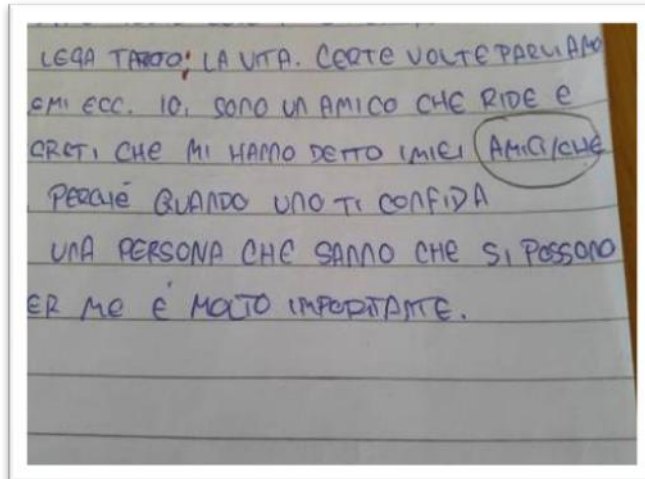 LEGA TANTO; LA VITA. CERTE VOLTE PARLIAMO
EMI ECC. IO, SONO UN AMICO CHE RIDE E
CRETI CHE MI HANNO DETTO I MIEI AMICI/CHE
PERCHÉ QUANDO UNO TI CONFIDA
UNA PERSONA CHE SANNO CHE SI POSSONO
ER ME È MOLTO IMPORTANTE.